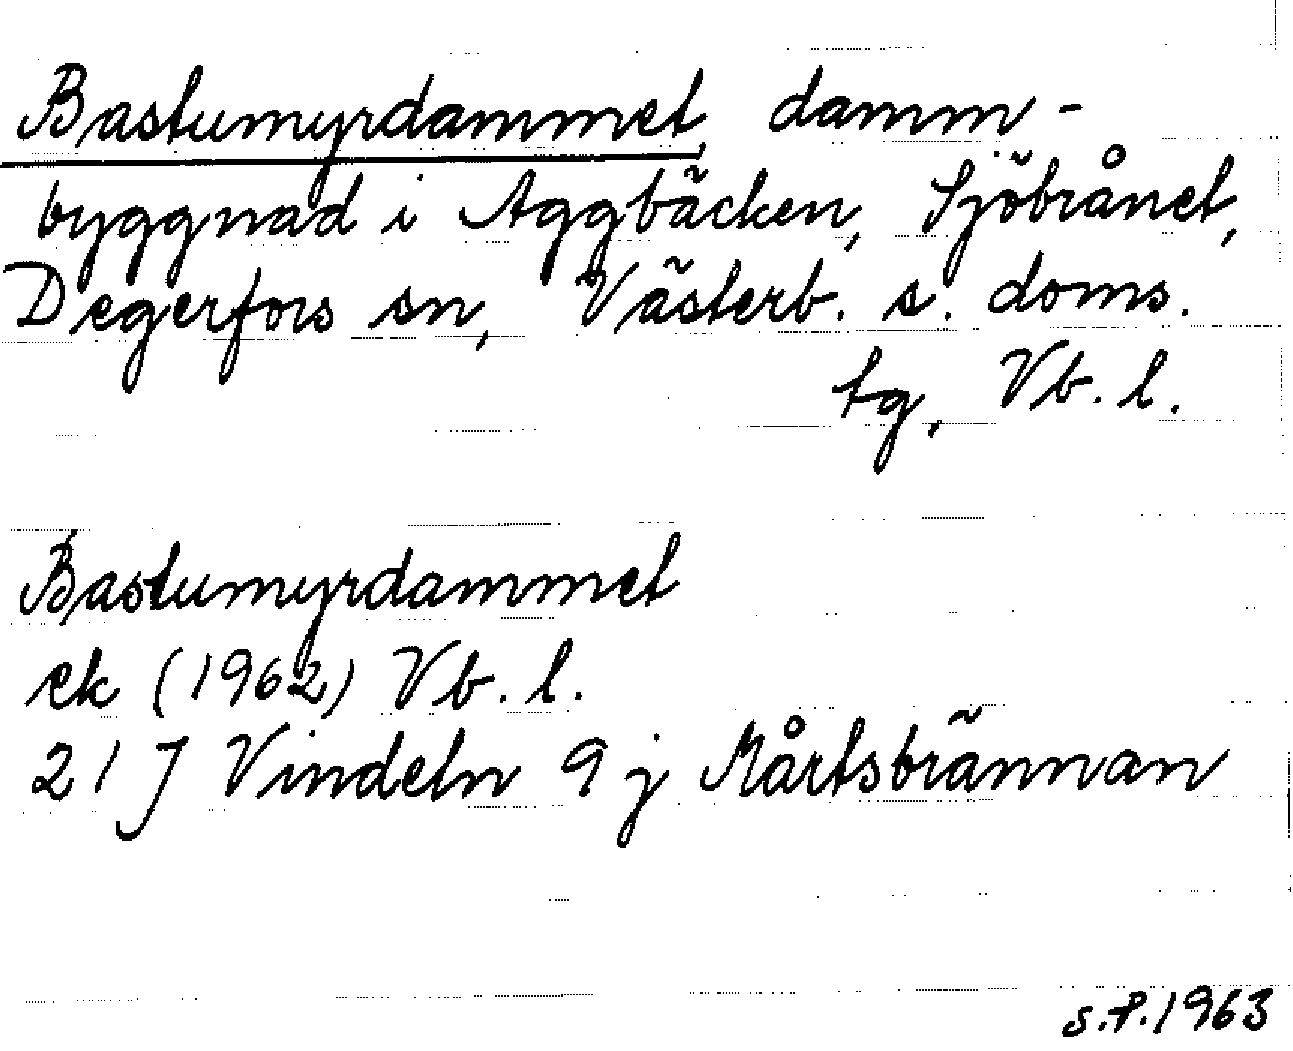 Bastumyrdammet, damm-
byggnad i Aggbäcken, Sjöbrånet,
Degerfors sn, Västerb. s. doms.
tg, Vb. l.
Bastumyrdammet
ek (1962) Vb. l.
21 J Vindeln 9 j Mårtsbrännan
S.P. 1963